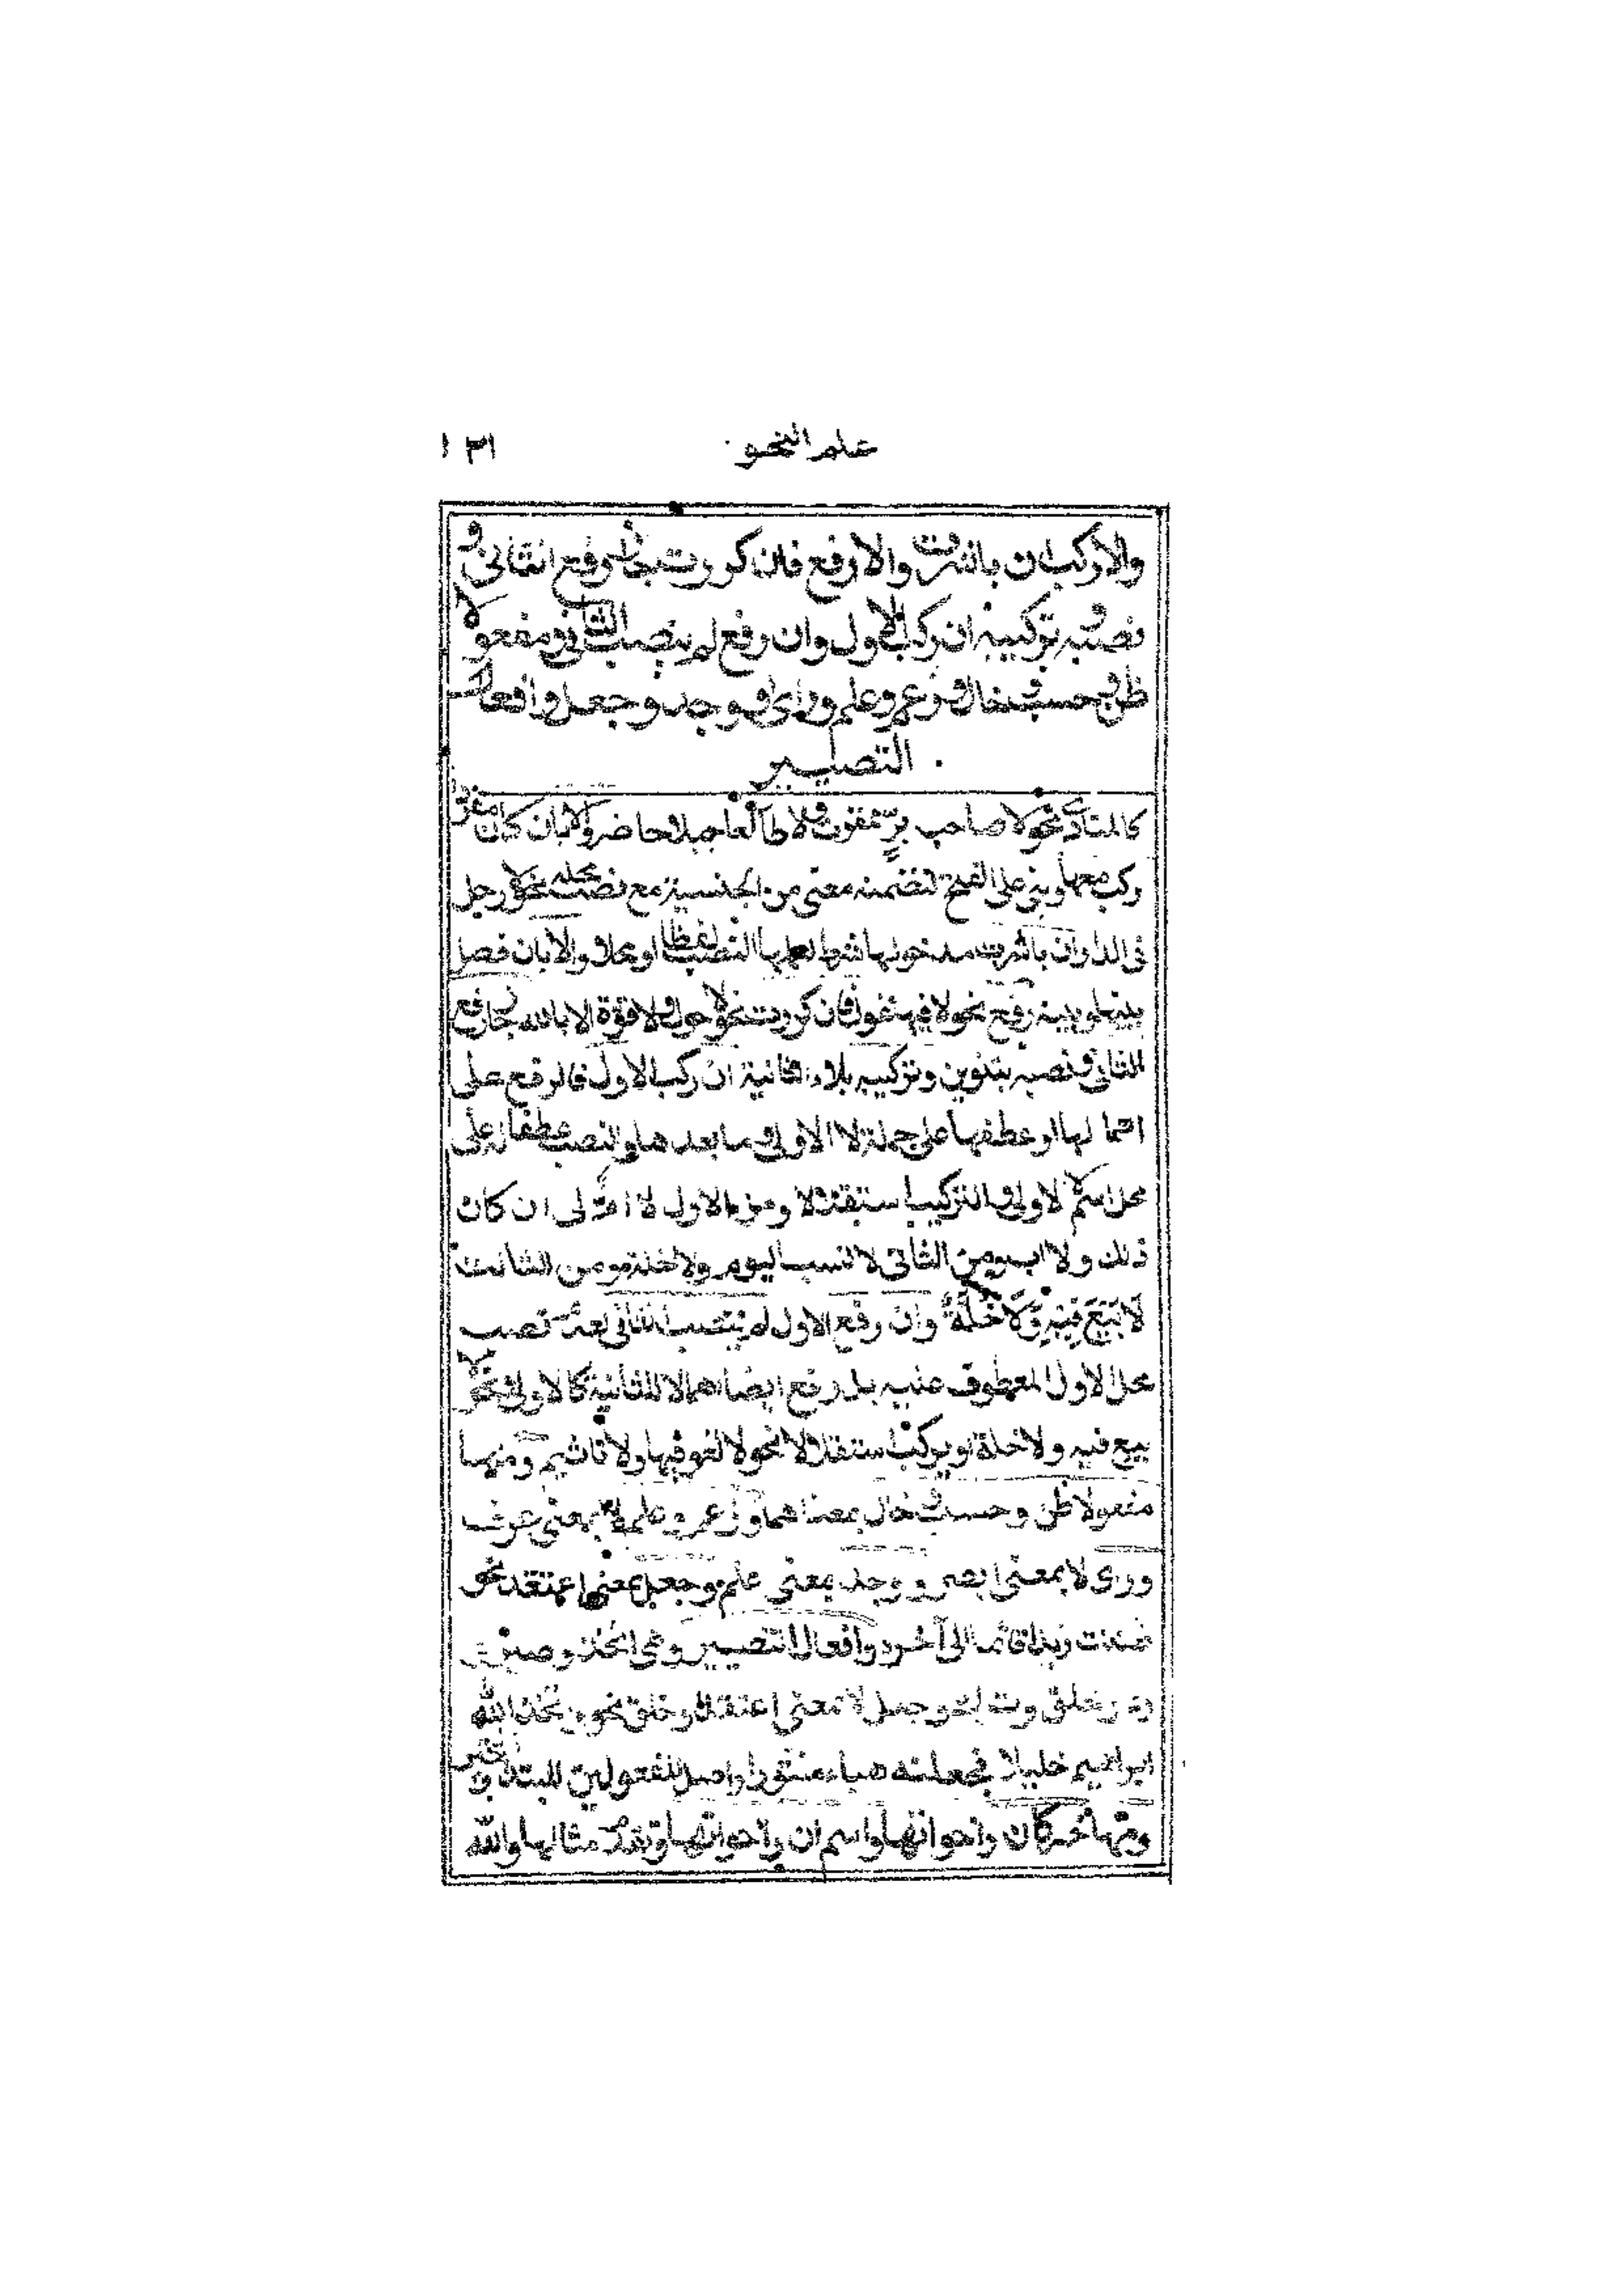 علم النحو
١٣١
والا ركب ان باشرت والا رفع فان كررت جاز رفع الثانى و
نصبه وتركيبه ان ركب الاول وان رفع لم ينصب الثانى ومفعولا
ظن وحسب وخال وزعم وعلم وراى ووجد وجعل وافعال
التصيير
كالمنادى نحو لا صاحب بر ممقوت ولا طالعا جبلا حاضر والا بان كان مفردا
ركب معها وبنى على الفتح لتضمنه معنى من الجنسية مع نصب محله نحو لا رجل
فى الدار ان باشرت مدخولها شرط لعملها النصب لفظا او محلا والا بان فصل
بينها وبينه رفع نحو لا فيها غول فان كررت نحو لا حول ولا قوة الا بالله جاز رفع
الثانى ونصبه بتنوين وتركيبه بلا الثانية ان ركب الاول فالرفع على
اهمالها او عطفها على جملة لا الاولى وما بعدها والنصب عطفا له على
محل اسم لا الاولى والتركيب استقلالا ومن الاول لا ام لى ان كان
ذلك ولا اب ومن الثانى لا نسب اليوم ولا خلة ومن الثالث
لَا بَيْعَ فِيهِ وَلَا خُلَّةَ وان رفع الاول لم ينصب الثانى لعدم نصب
محل الاول المعطوف عليه بل رفع ايضا اهمالا للثانية كالاولى نحو لا
بيع فيه ولا خلة او يركب استقلالا نحو لا لغو فيها ولا تاثيم ومنها
مفعولا ظن وحسب وخال بمعناهما وزعم وعلم لا بمعنى عرف
وراى لا بمعنى ابصر ووجد بمعنى علم وجعل بمعنى اعتقد نحو
ظننت زيدا قائما الى آخره وافعال التصيير وهى اتخذ وصير
وجعل لا بمعنى اعتقد وخلق نحو واتخذ الله
ابراهيم خليلا فجعلناه هباء منثورا واصل المفعولين المبتدا والخبر
ومنها خبر كان واخواتها واسم ان واخواتها وتقدم مثالها والله